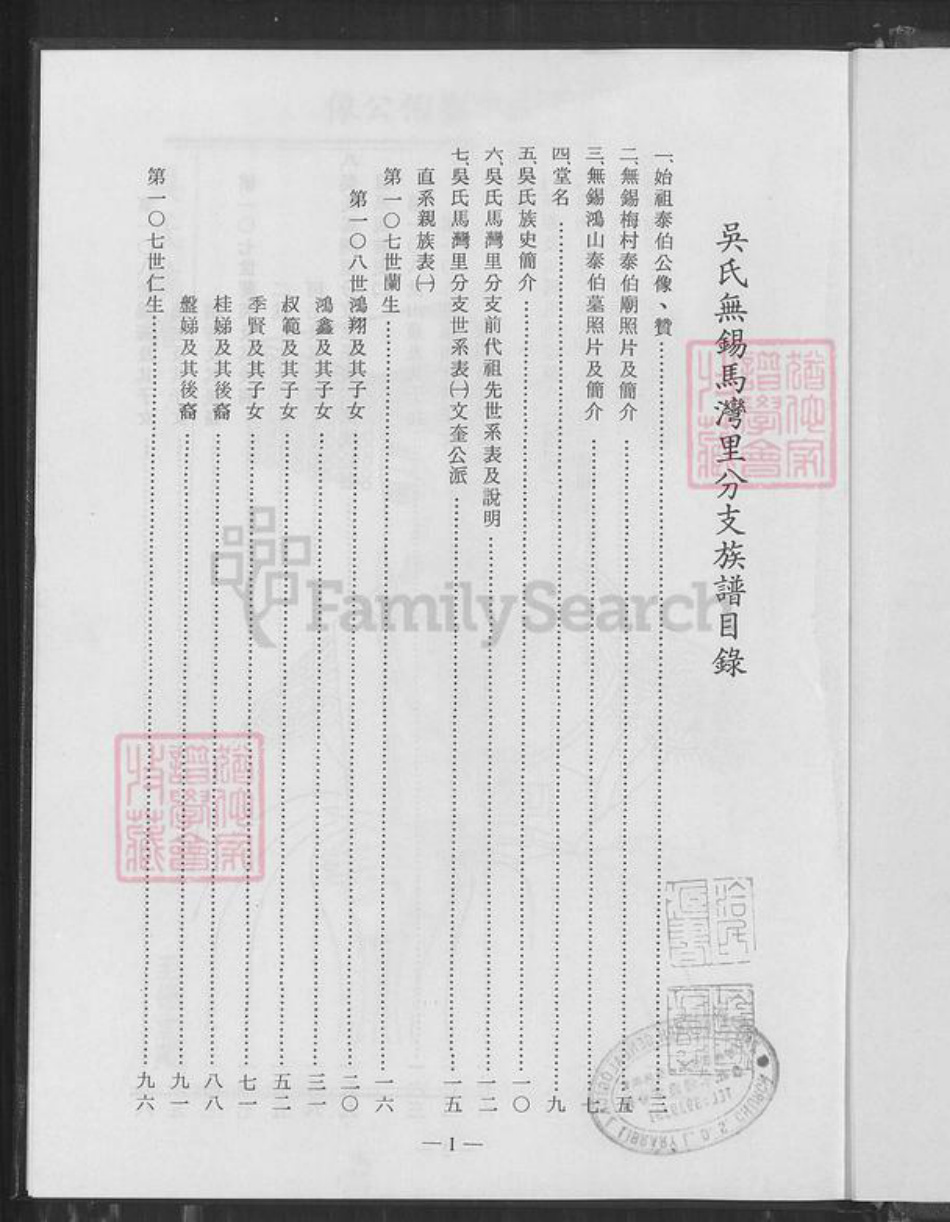 吳氏無錫馬灣里分支族譜目錄
一、始祖泰伯公像、贊……三
二、無錫梅村泰伯廟照片及簡介……五
三、無錫鴻山泰伯墓照片及簡介……七
四、堂名……九
五、吳氏族史簡介……一〇
六、吳氏馬灣里分支前代祖先世系表及說明……一二
七、吳氏馬灣里分支世系表㈠文奎公派……一五
直系親族表㈠
第一〇七世蘭生……一六
第一〇八世鴻翔及其子女……二〇
鴻鑫及其子女……三一
叔範及其子女……五二
季賢及其子女……七一
桂娣及其後裔……八八
盤娣及其後裔……九一
第一〇七世仁生……九六
—1—
FamilySearch